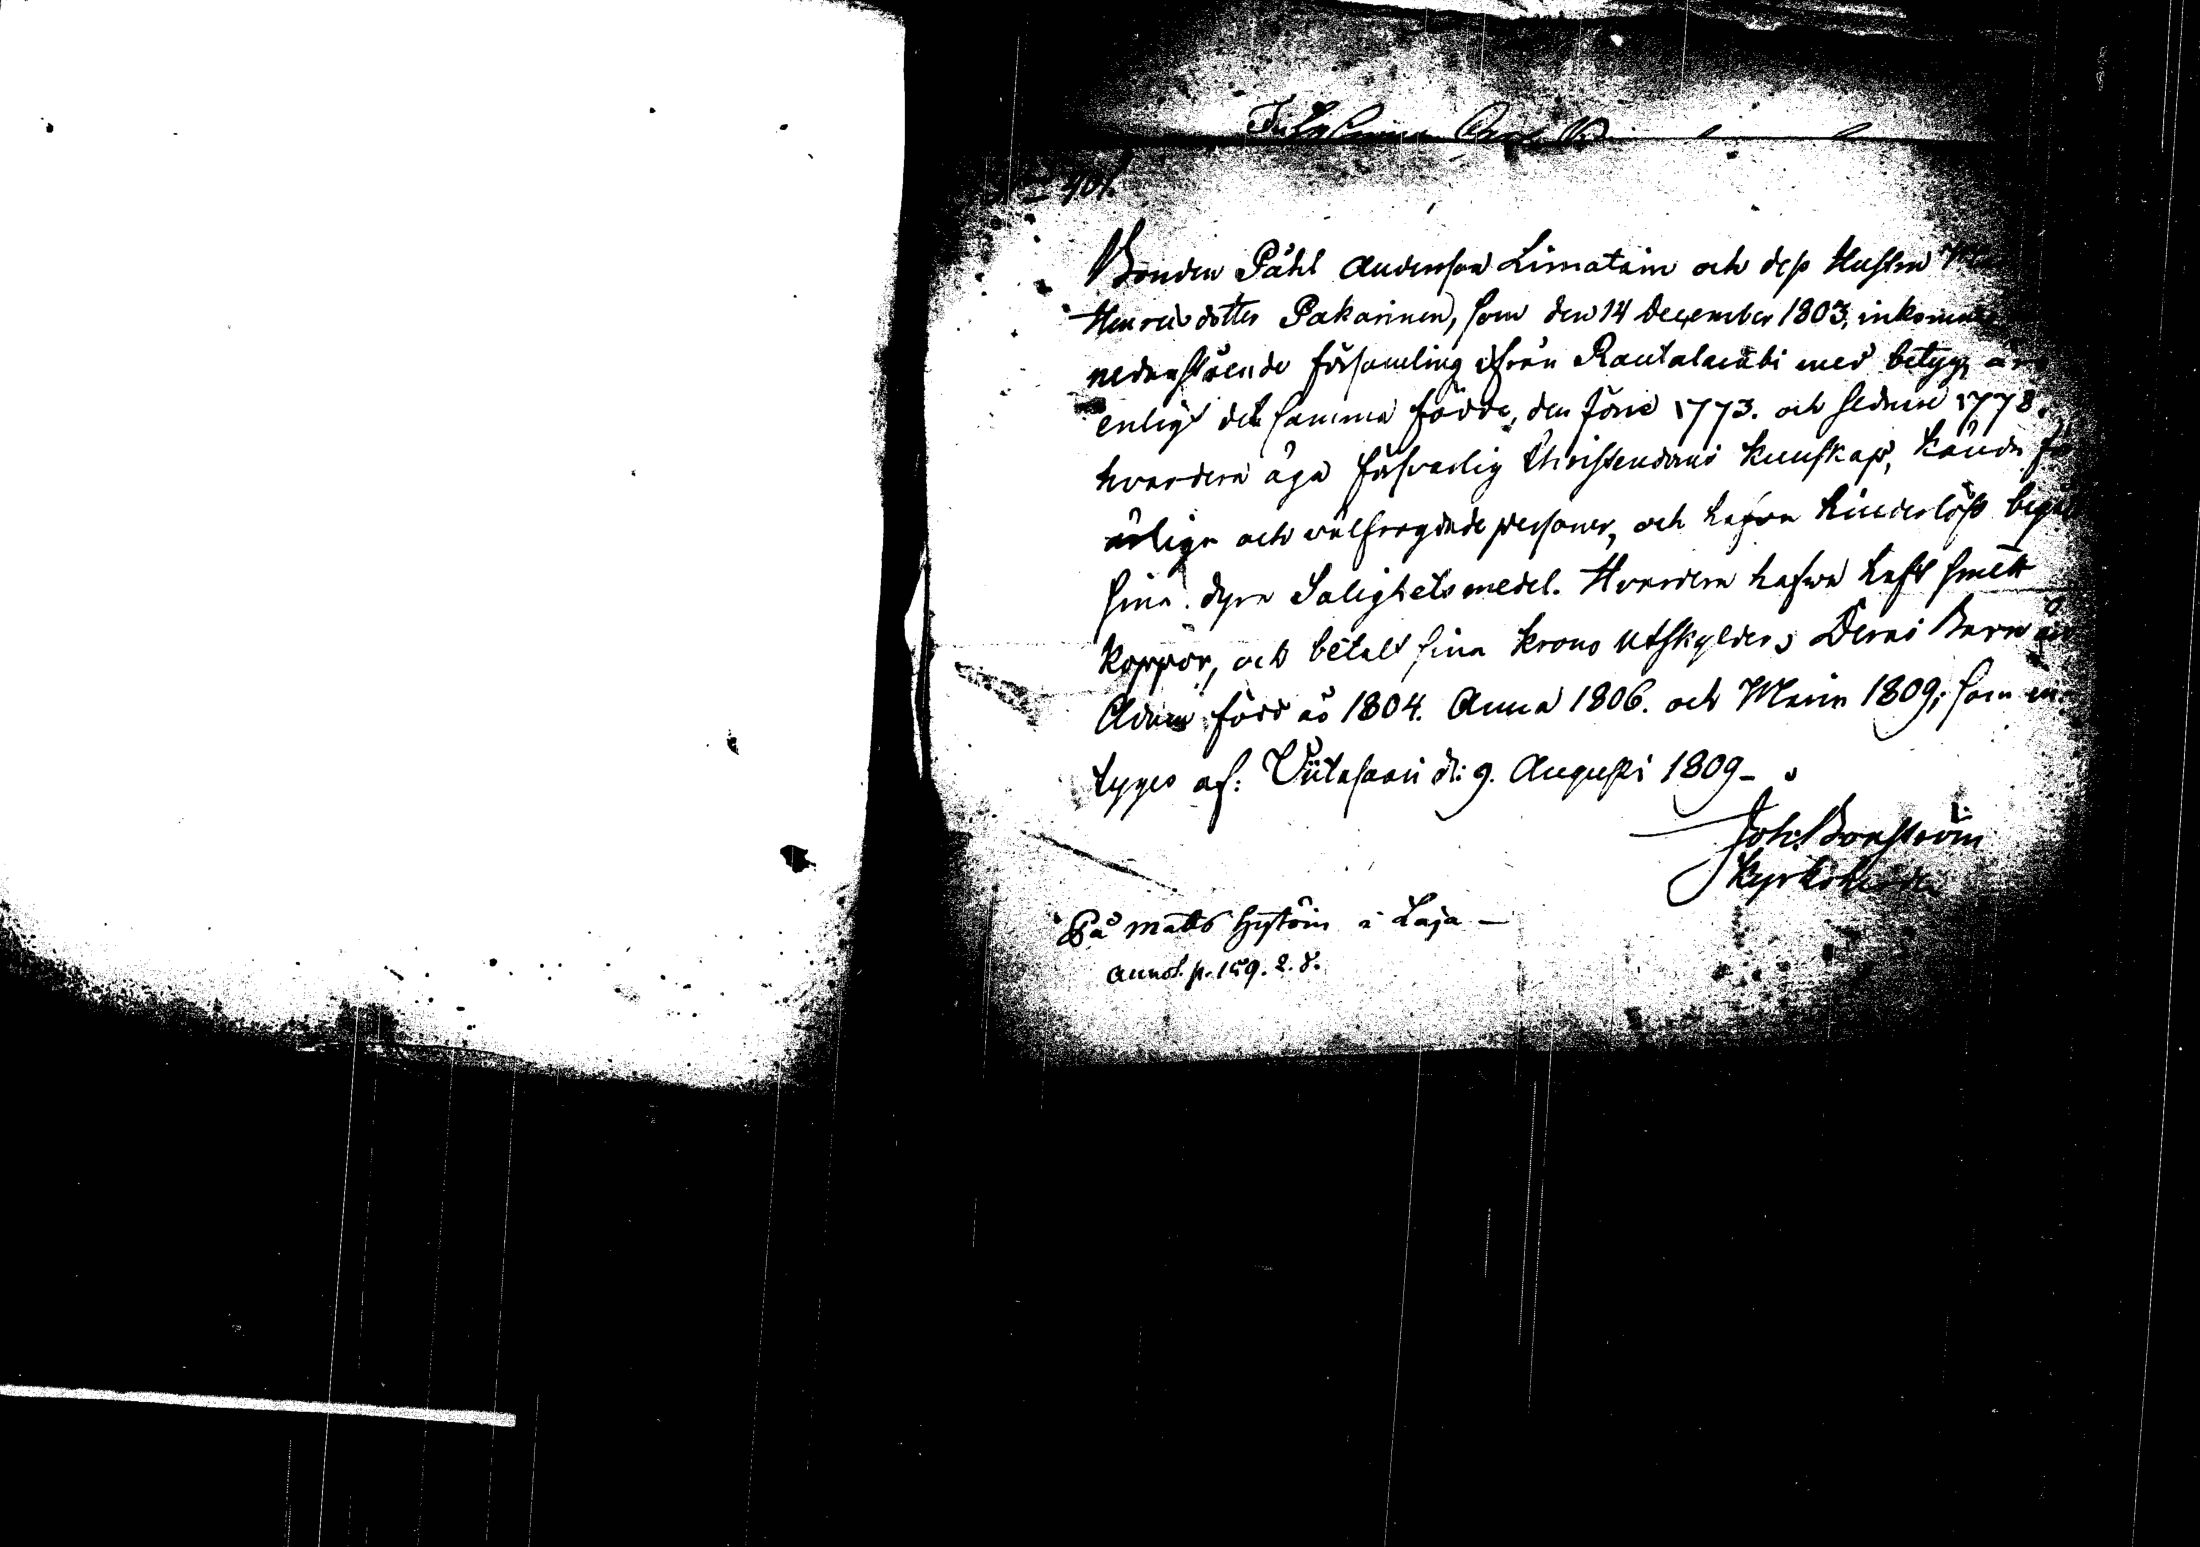 401.
Bonden Påhl Andersson Limatain och dess Hustru
Henricsdotter Pakarinen, som den 14 December 1803, inkommit
nedanstående församling ifrån Rautalambi med betyg, är
enligt det samma födde, den förre 1773. och sednare 1778.
hvardera äga försvarlig Christendoms kunskap, kände för
ärliga och välfrägdade personer, och hafva hinderlöst begå
sina dyra Salighets medel. Hvardera hafva haft smått
koppor, och betalt sina Krono utskylder. Deras Barn är
Adam född åo 1804. Anna 1806. och Maria 1809; som
tyges af: Viitasaari d: 9. Augusti 1809
Joh: Bonström
Kyrkoherde
På Matts Hytöin i Laja
Annot. p. 159. 2. d.